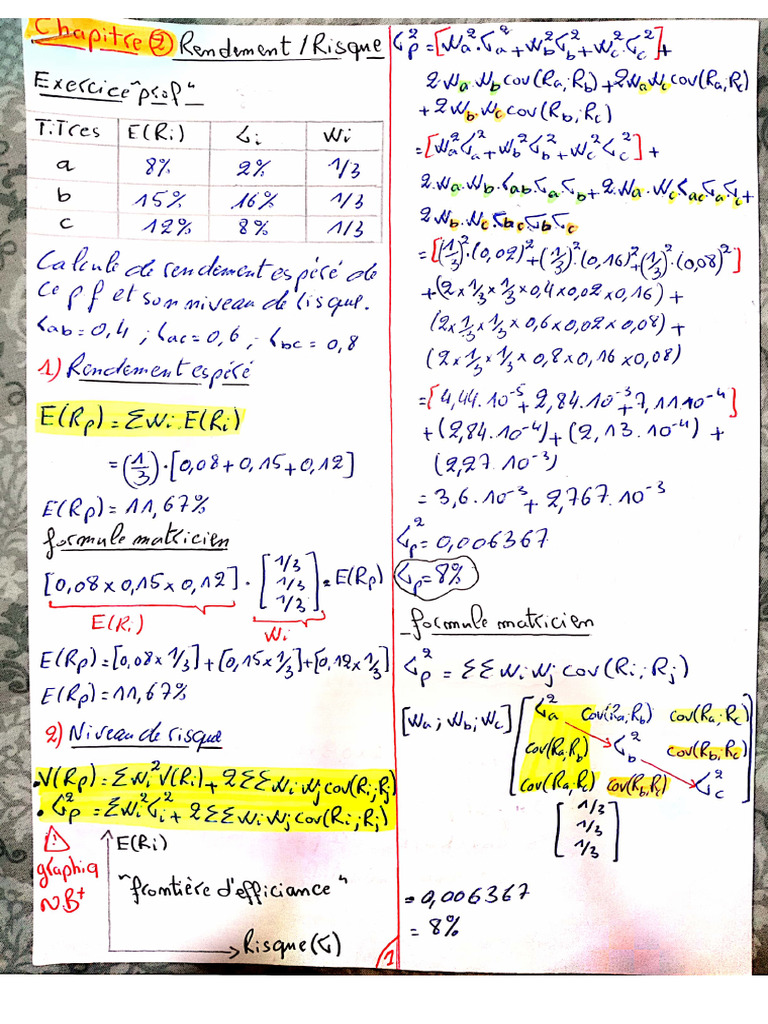 Chapitre ② Rendement / Risque
Exercice "prof"
T.Tres E(Ri) σi Wi
a 8% 2% 1/3
b 15% 16% 1/3
c 12% 8% 1/3
Calcule de rendement espéré de
ce pf et son niveau de risque.
ρab = 0,4 ; ρac = 0,6 ; ρbc = 0,8
1) Rendement espéré
E(Rp) = ΣWi.E(Ri)
= (1/3).[0,08+0,15+0,12]
E(Rp) = 11,67%
formule matricien
[0,08 x 0,15 x 0,12] . [1/3 1/3 1/3] = E(Rp)
E(Ri) Wi
E(Rp) = [0,08x1/3] + [0,15x1/3] + [0,12x1/3]
E(Rp) = 11,67%
2) Niveau de risque
. V(Rp) = ΣWi²V(Ri) + 2ΣΣWiWjcov(Ri;Rj)
. σp² = ΣWi²σi² + 2ΣΣWiWjcov(Ri;Rj)
⚠ graphiq
N.B+
E(Ri)
"frontière d'efficiance"
Risque(σ)
σp² = [Wa².σa² + Wb²σb² + Wc².σc²] +
2Wa.Wb cov(Ra;Rb) + 2WaWc cov(Ra;Rc)
+ 2Wb.Wc cov(Rb;Rc)
= [Wa²σa² + Wb²σb² + Wc²σc²] +
2.Wa.Wb.ρab.σa.σb + 2.Wa.Wc.ρac.σa.σc +
2Wb.Wc.ρbc.σb.σc
= [(1/3)².(0,02)² + (1/3)².(0,16)² + (1/3)².(0,08)²]
+ (2x1/3x1/3x0,4x0,02x0,16) +
(2x1/3x1/3x0,6x0,02x0,08) +
(2x1/3x1/3x0,8x0,16x0,08)
= [4,44.10⁻⁵ + 2,84.10⁻³ + 7,11.10⁻⁴]
+ (2,84.10⁻⁴) + (2,13.10⁻⁴) +
(2,27.10⁻³)
= 3,6.10⁻³ + 2,767.10⁻³
σp² = 0,006367
σp = 8%
formule matricien
σp² = ΣΣWiWjcov(Ri;Rj)
[Wa; Wb; Wc] [σa² cov(Ra;Rb) cov(Ra;Rc)
cov(Ra;Rb) σb² cov(Rb;Rc)
cov(Ra;Rc) cov(Rb;Rc) σc²]
[1/3
1/3
1/3]
= 0,006367
= 8%
1